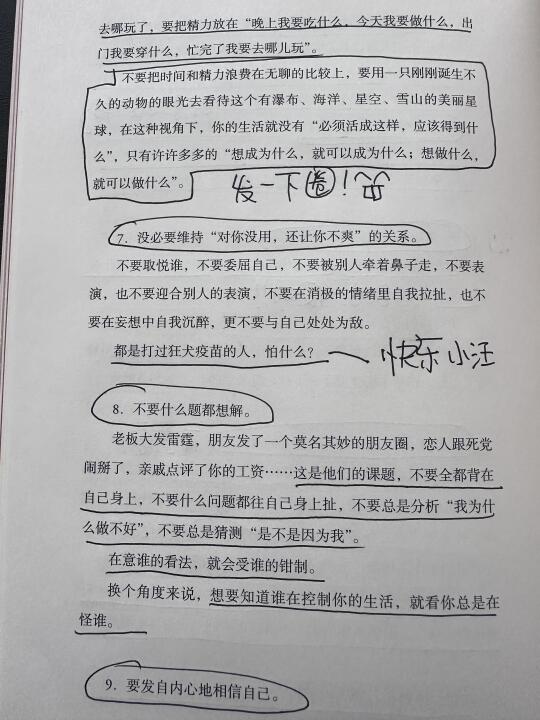 去哪玩了，要把精力放在“晚上我要吃什么，今天我要做什么，出
门我要穿什么，忙完了我要去哪儿玩”。
不要把时间和精力浪费在无聊的比较上，要用一只刚刚诞生不
久的动物的眼光去看待这个有瀑布、海洋、星空、雪山的美丽星
球，在这种视角下，你的生活就没有“必须活成这样，应该得到什
么”，只有许许多多的“想成为什么，就可以成为什么；想做什么，
就可以做什么”。
发一下圈！
7．没必要维持“对你没用，还让你不爽”的关系。
不要取悦谁，不要委屈自己，不要被别人牵着鼻子走，不要表
演，也不要迎合别人的表演，不要在消极的情绪里自我拉扯，也不
要在妄想中自我沉醉，更不要与自己处处为敌。
都是打过狂犬疫苗的人，怕什么？ 快乐小汪
8．不要什么题都想解。
老板大发雷霆，朋友发了一个莫名其妙的朋友圈，恋人跟死党
闹掰了，亲戚点评了你的工资……这是他们的课题，不要全都背在
自己身上，不要什么问题都往自己身上扯，不要总是分析“我为什
么做不好”，不要总是猜测“是不是因为我”。
在意谁的看法，就会受谁的钳制。
换个角度来说，想要知道谁在控制你的生活，就看你总是在
怪谁。
9．要发自内心地相信自己。